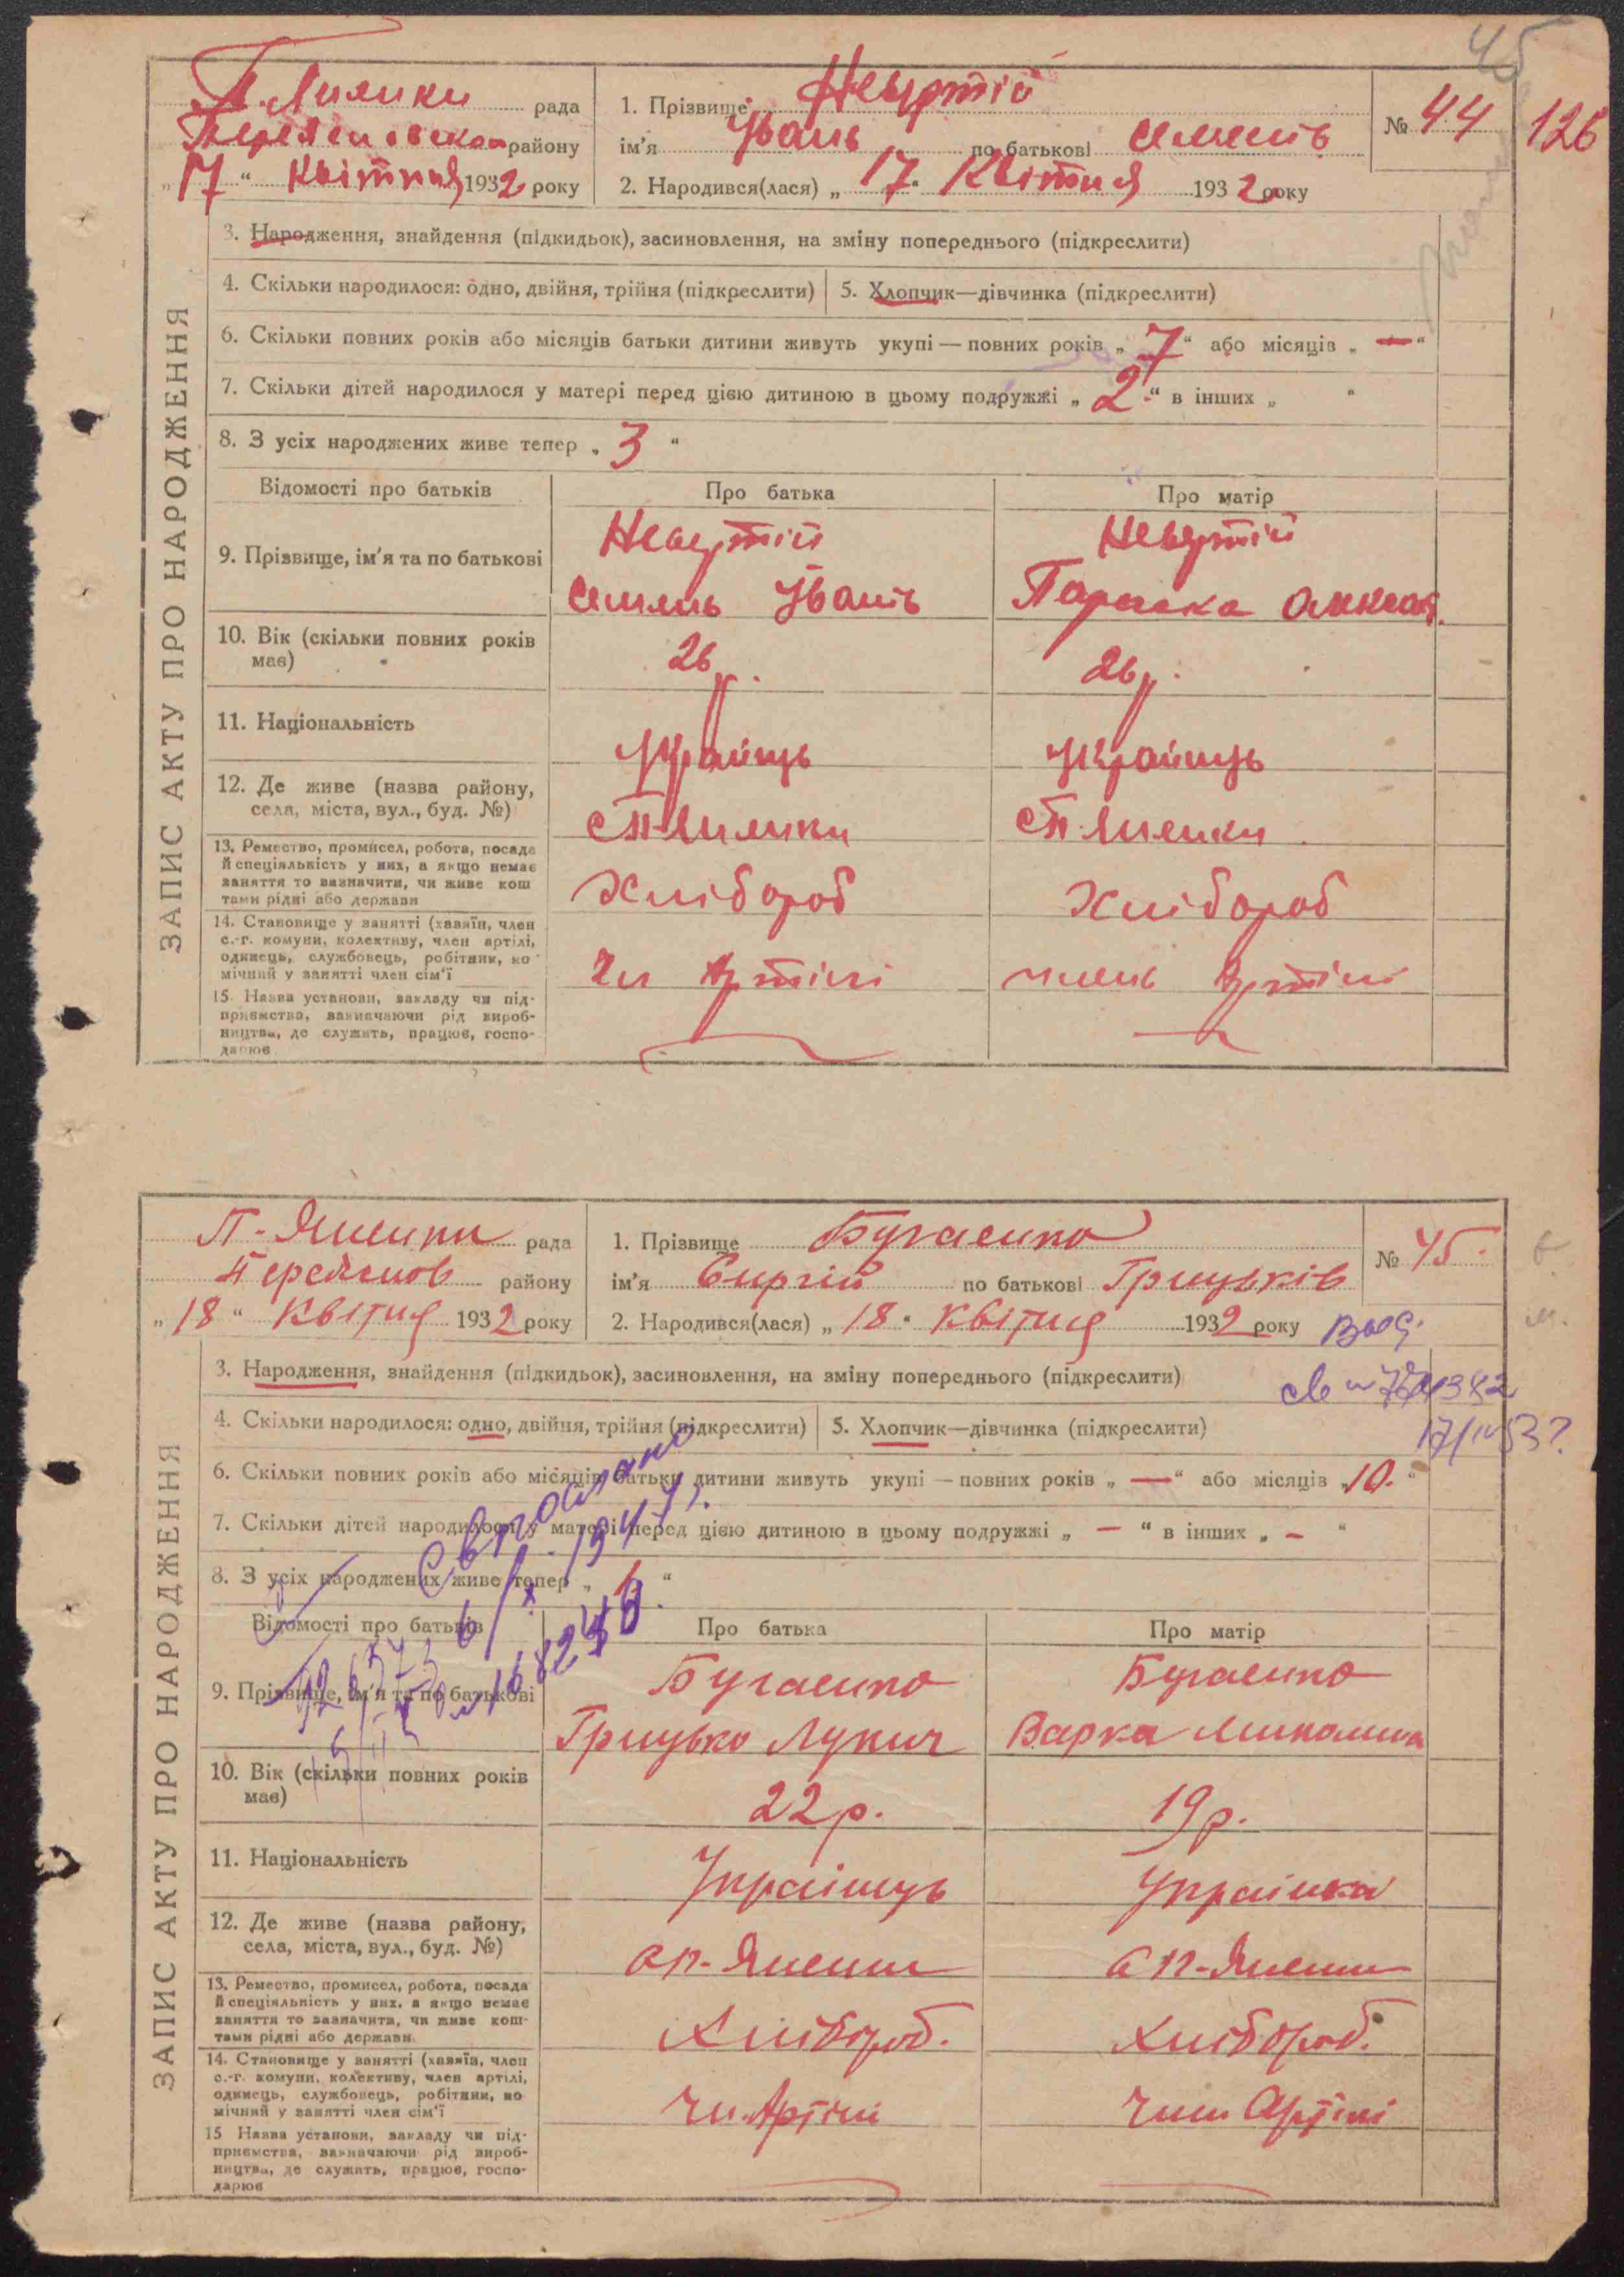 45
126
рада
району
„17“ Квітня 1932 року
1. Прізвище
ім'я Івань по батькові Семенів
2. Народився(лася) „17“ Квітня 1932 року
№ 44
ЗАПИС АКТУ ПРО НАРОДЖЕННЯ
3. Народження, знайдення (підкидьок), засиновлення, на зміну попереднього (підкреслити)
4. Скільки народилося: одно, двійня, трійня (підкреслити)
5. Хлопчик—дівчинка (підкреслити)
6. Скільки повних років або місяців батьки дитини живуть укупі — повних років „7“ або місяців „—“
7. Скільки дітей народилося у матері перед цією дитиною в цьому подружжі „2“ в інших „ “
8. З усіх народжених живе тепер „3“
Відомості про батьків
Про батька
Про матір
9. Прізвище, ім'я та по батькові
Семень Іванів
Параска
10. Вік (скільки повних років
має)
26 р.
26 р.
11. Національність
Українць
Українць
12. Де живе (назва району,
села, міста, вул., буд. №)
13. Ремество, промисел, робота, посада
й спеціяльність у них, а якщо немає
заняття то зазначити, чи живе кош
тами рідні або держави
Хлібороб
Хлібороб
14. Становище у занятті (хазяїн, член
с.-г. комуни, колективу, член артілі,
одинець, службовець, робітник, по
мічний у занятті член сім'ї
Чл Артілі
член Артілі
15. Назва установи, закладу чи під-
приємства, зазначаючи рід вироб-
ництва, де служить, працює, госпо-
дарює
П-Яненки рада
Переяслов району
„18“ Квітня 1932 року
1. Прізвище Бугаенко
ім'я Сиргій по батькові Грицьків
2. Народився(лася) „18“ Квітня 1932 року
№ 45.
ЗАПИС АКТУ ПРО НАРОДЖЕННЯ
3. Народження, знайдення (підкидьок), засиновлення, на зміну попереднього (підкреслити)
4. Скільки народилося: одно, двійня, трійня (підкреслити)
5. Хлопчик—дівчинка (підкреслити)
6. Скільки повних років або місяців батьки дитини живуть укупі — повних років „—“ або місяців „10.“
7. Скільки дітей народилося у матері перед цією дитиною в цьому подружжі „—“ в інших „—“
8. З усіх народжених живе тепер „1“
Відомості про батьків
Про батька
Про матір
9. Прізвище, ім'я та по батькові
Бугаенко
Грицько Лукич
Бугаенко
Варка
10. Вік (скільки повних років
має)
22 р.
19 р.
11. Національність
Українць
Українка
12. Де живе (назва району,
села, міста, вул., буд. №)
13. Ремество, промисел, робота, посада
й спеціяльність у них, а якщо немає
заняття то зазначити, чи живе кош-
тами рідні або держави
Хлібороб.
Хлібороб.
14. Становище у занятті (хазяїн, член
с.-г. комуни, колективу, член артілі,
одинець, службовець, робітник, по
мічний у занятті член сім'ї
Чл. Артілі
Член Артілі
15 Назва установи, закладу чи під-
приємства, зазначаючи рід вироб-
ництва, де служить, працює, госпо-
дарює